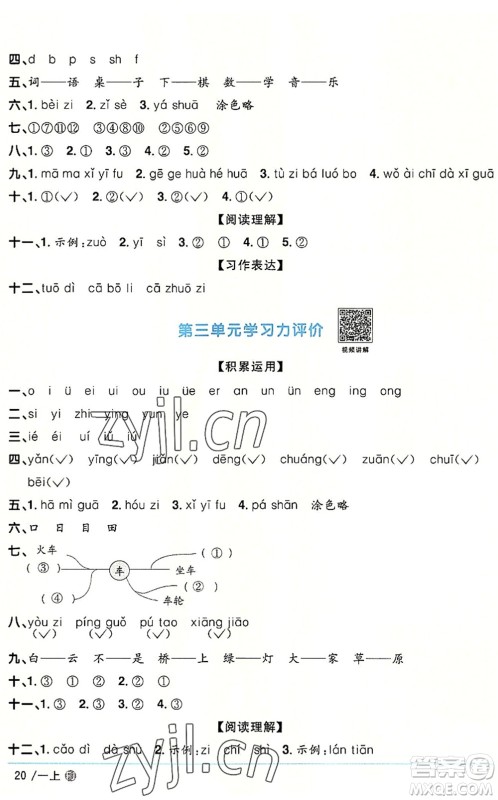 四、d b p s sh f
五、词——语 桌——子 下——棋 数——学 音——乐
六、1. bèi zi 2. zǐ sè 3. yá shuā 涂色略
七、①⑦⑪⑫ ③④⑧⑩ ②⑤⑥⑨
八、1. ③ 2. ① 3. ②
九、1. mā ma xǐ yī fu 2. gē ge huà huà 3. tù zi bá luó bo 4. wǒ ài chī dà xī guā
十、1. ①(✓) 2. ②(✓) 3. ②(✓) 4. ①(✓)
【阅读理解】
十一、1. 示例:zuò 2. yī sì 3. ② ① 4. ① 5. ②
【习作表达】
十二、tuō dì cā bō li cā zhuō zi
第三单元学习力评价
视频讲解
【积累运用】
一、o i ü ei ui ou iu üe er an un ün eng ing ong
二、si yi zhi ying yun ye
三、ié éi iú uí iú
四、yǎn(✓) yīng(✓) jiǎn(✓) dēng(✓) chuáng(✓) zuǐ(✓) chuī(✓)
bēi(✓)
五、1. hā mì guā 2. hóu zi 3. xǐ yī fu 4. pá shān 涂色略
六、口 日 目 田
七、火车 (①)
(③) 车 坐车
(②)
(④) 车轮
八、yòu zi píng guǒ pú tao xiāng jiāo
(✓) (✓) (✓) (✓)
九、白——云 不——是 桥——上 绿——灯 大——家 草——原
十、1. ③ ① ② 2. ② ① ③
十一、1. ③ 2. ② 3. ① 4. ②
【阅读理解】
十二、1. cǎo dì dà shù 2. 示例:zi chī shì 3. 示例:lán tiān
20 /一上
zyjl.cn
zyjl.cn
答案圈
MXQE.COM